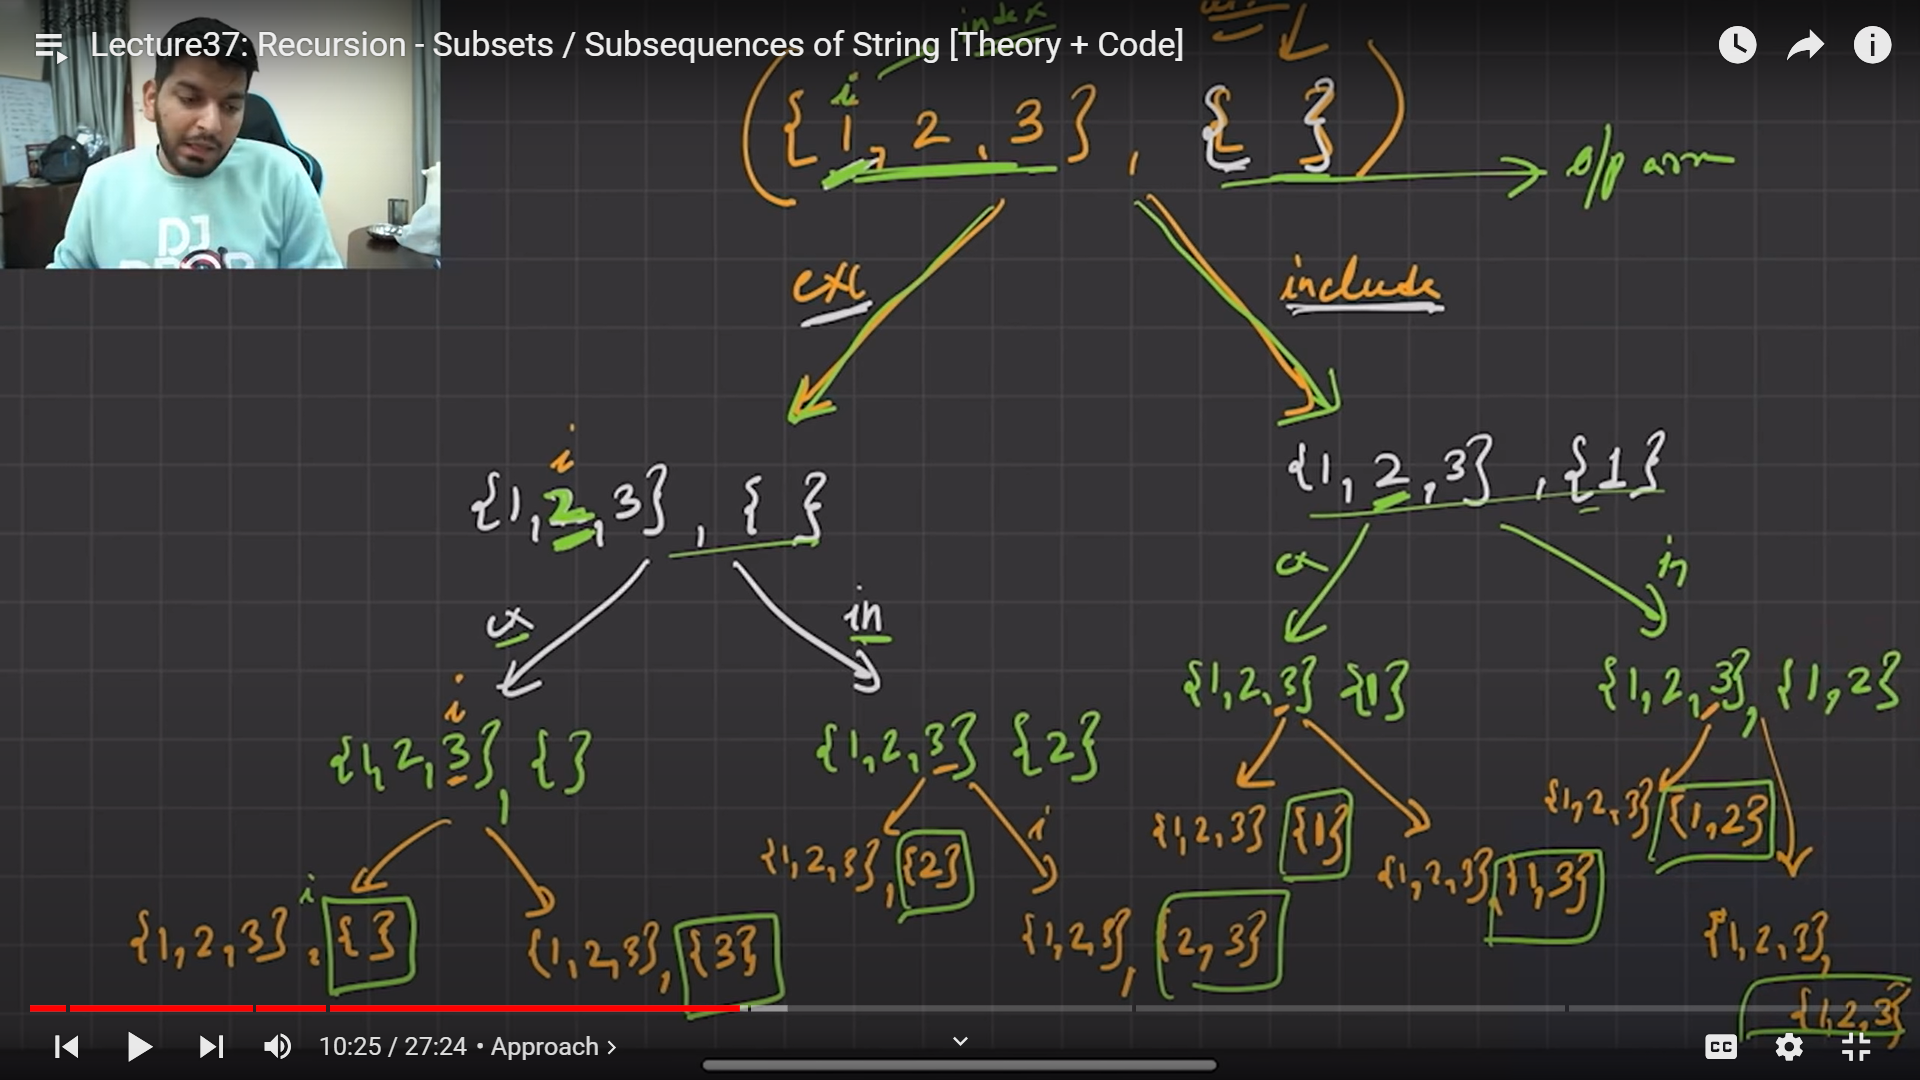 Lecture37: Recursion - Subsets / Subsequences of String [Theory + Code]
index
i
( {1, 2, 3} , { } )
o/p arr
exc
include
i
{1, 2, 3} , { }
{1, 2, 3} , {1}
ex
in
ex
in
i
{1, 2, 3} , { }
{1, 2, 3} {2}
{1, 2, 3} {1}
{1, 2, 3}, {1, 2}
i
{1, 2, 3} , { }
{1, 2, 3}, {3}
{1, 2, 3}, {2}
i
{1, 2, 3}, {2, 3}
{1, 2, 3} {1}
{1, 2, 3}, {1, 3}
{1, 2, 3} {1, 2}
{1, 2, 3},
{1, 2, 3}
DJ
DROP
10:25 / 27:24 • Approach >
CC